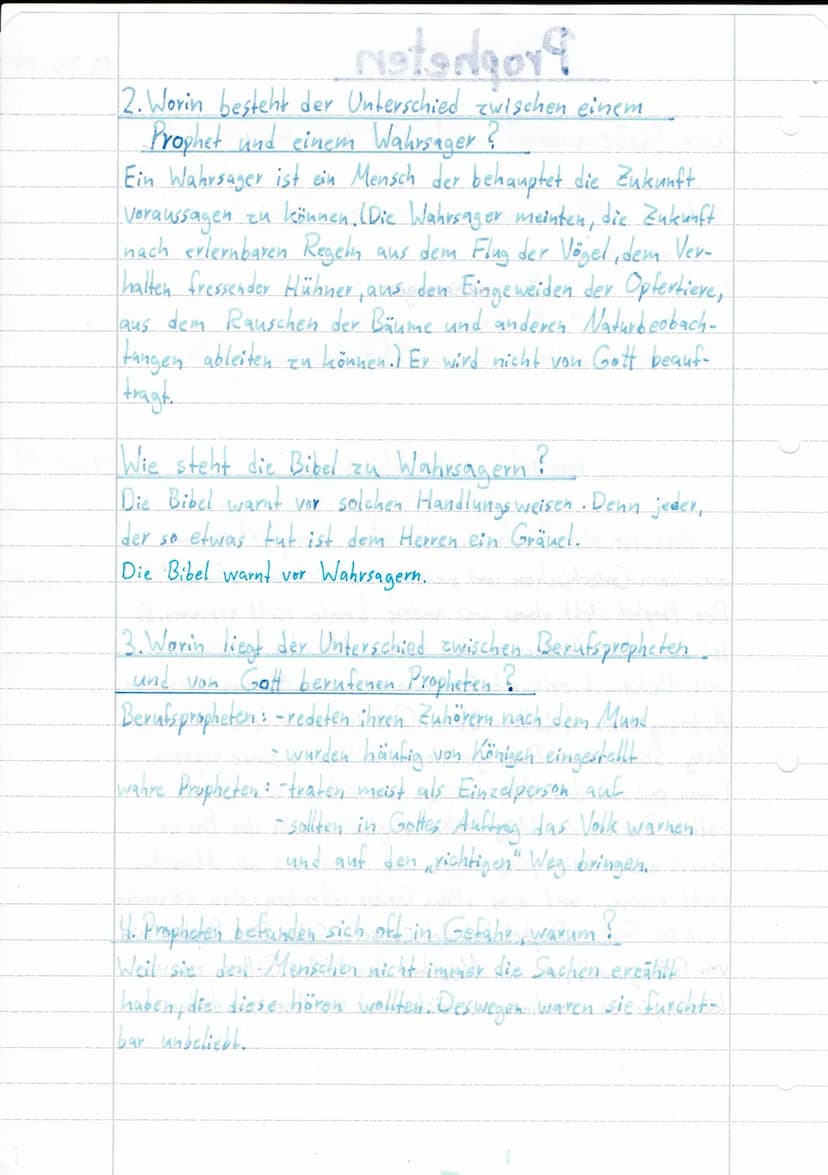 Propheten
2. Worin besteht der Unterschied zwischen einem
Prophet und einem Wahrsager?
Ein Wahrsager ist ein Mensch der behauptet die Zukunft
voraussagen zu können. (Die Wahrsager meinten, die Zukunft
nach erlernbaren Regeln aus dem Flug der Vögel, dem Ver-
halten fressender Hühner, aus den Eingeweiden der Opfertiere,
aus dem Rauschen der Bäume und anderen Naturbeobach-
tungen ableiten zu können.) Er wird nicht von Gott beauf-
tragt.
Wie steht die Bibel zu Wahrsagern?
Die Bibel warnt vor solchen Handlungsweisen. Denn jeder,
der so etwas tut ist dem Herren ein Gräuel.
Die Bibel warnt vor Wahrsagern.
3. Worin liegt der Unterschied zwischen Berufspropheten
und von Gott berufenen Propheten?
Berufspropheten: - redeten ihren Zuhörern nach dem Mund
- wurden häufig von Königen eingestellt
wahre Propheten: - traten meist als Einzelperson auf
- sollten in Gottes Auftrag das Volk warnen
und auf den „richtigen" Weg bringen.
4. Propheten befanden sich oft in Gefahr, warum?
Weil sie den Menschen nicht immer die Sachen erzählt
haben, die diese hören wollten. Deswegen waren sie furcht-
bar unbeliebt.